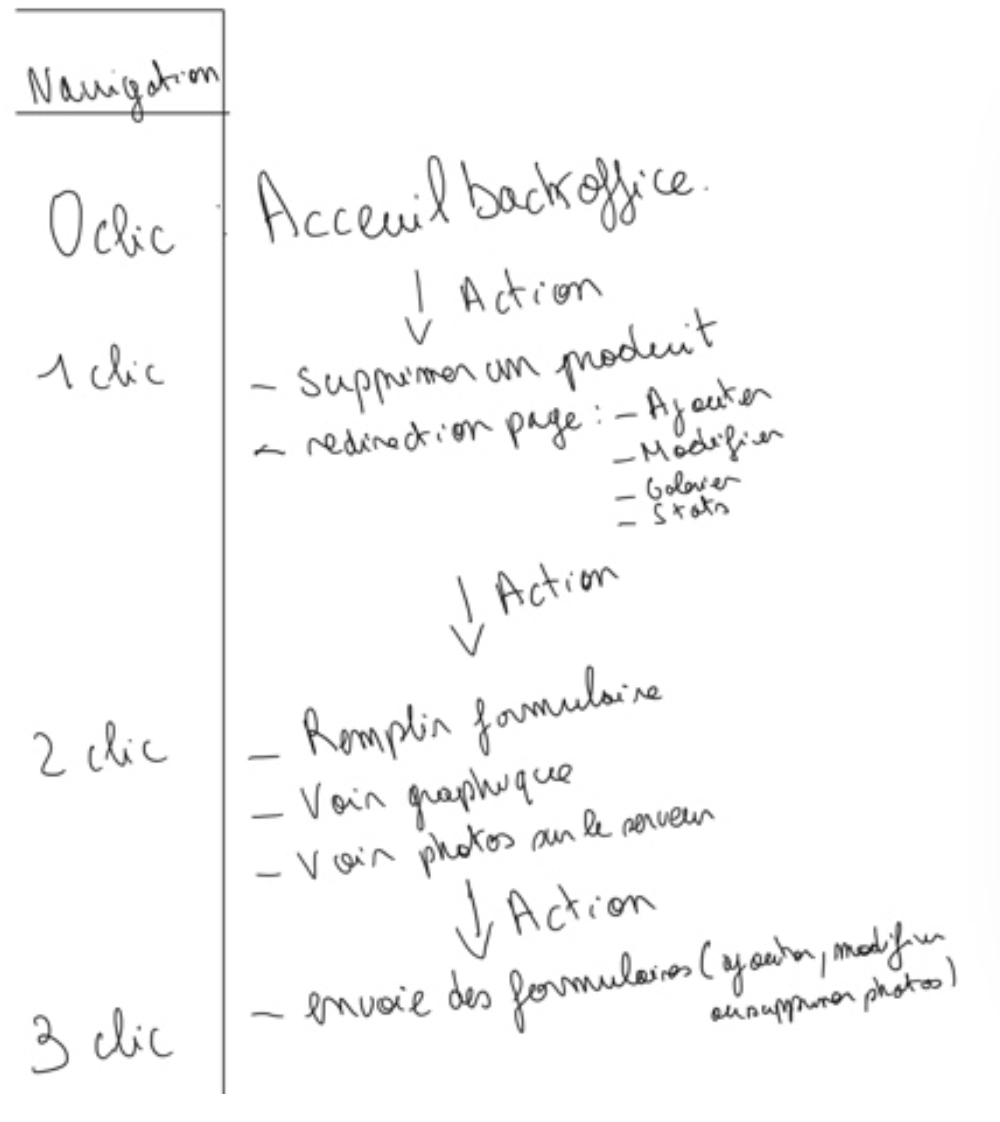 Navigation
0 clic : Acceuil backoffice.
↓ Action
1 clic - Supprimer un produit
- redirection page : - Ajouter
- Modifier
- Galerier
- Stats
↓ Action
2 clic - Remplir formulaire
- Voir graphique
- Voir photos sur le serveur
↓ Action
3 clic - envoie des formulaires (ajouter, modifier
ou supprimer photos)